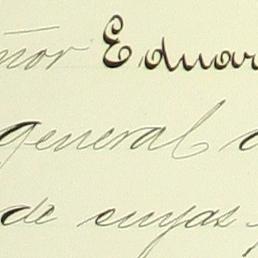 ñor Eduar
general d
de cuyas